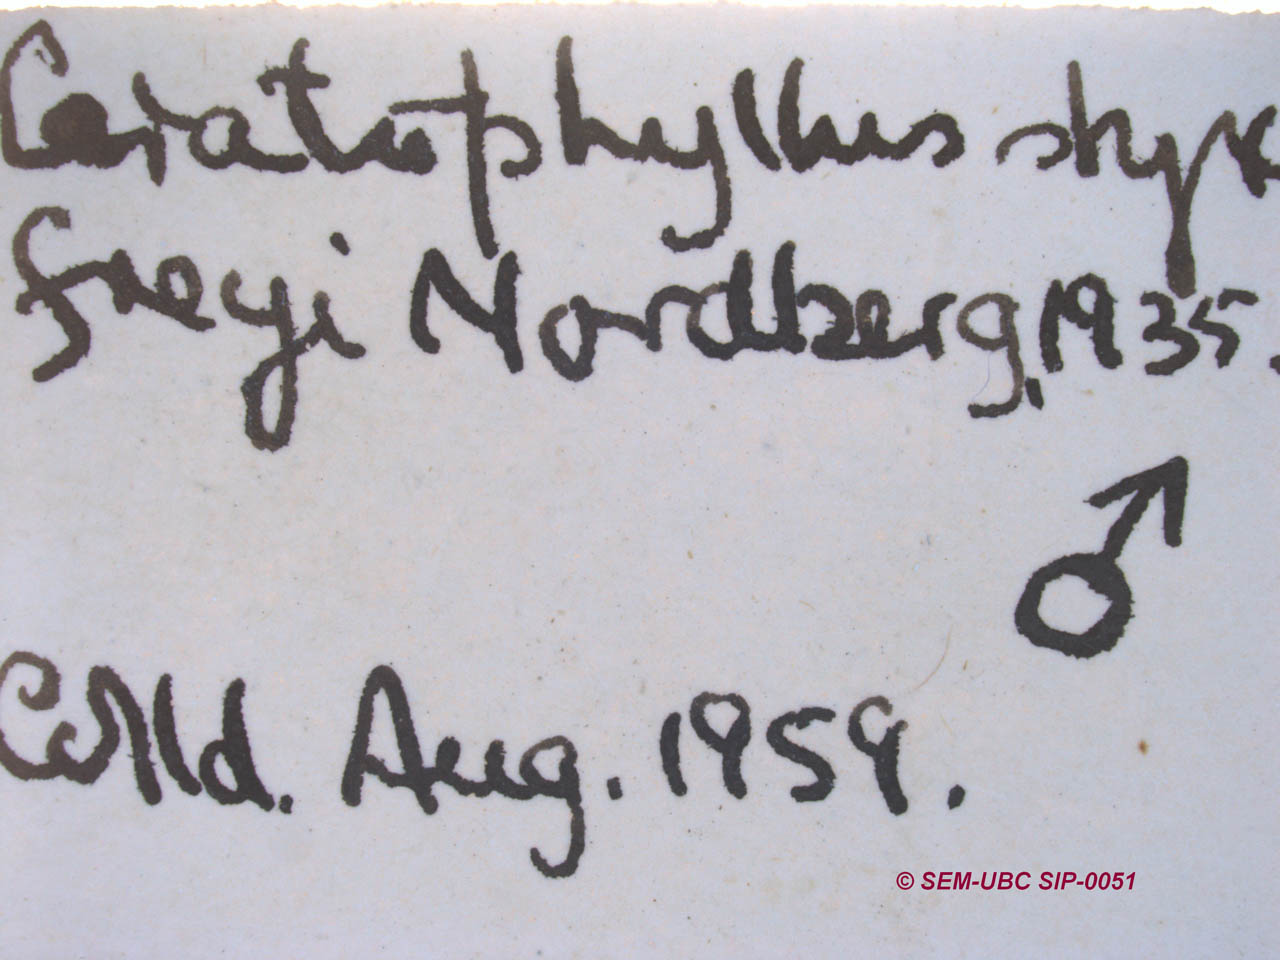 Ceratophyllus styx
freyi Nordberg, 1935.
♂
Colld. Aug. 1959.
© SEM-UBC SIP-0051